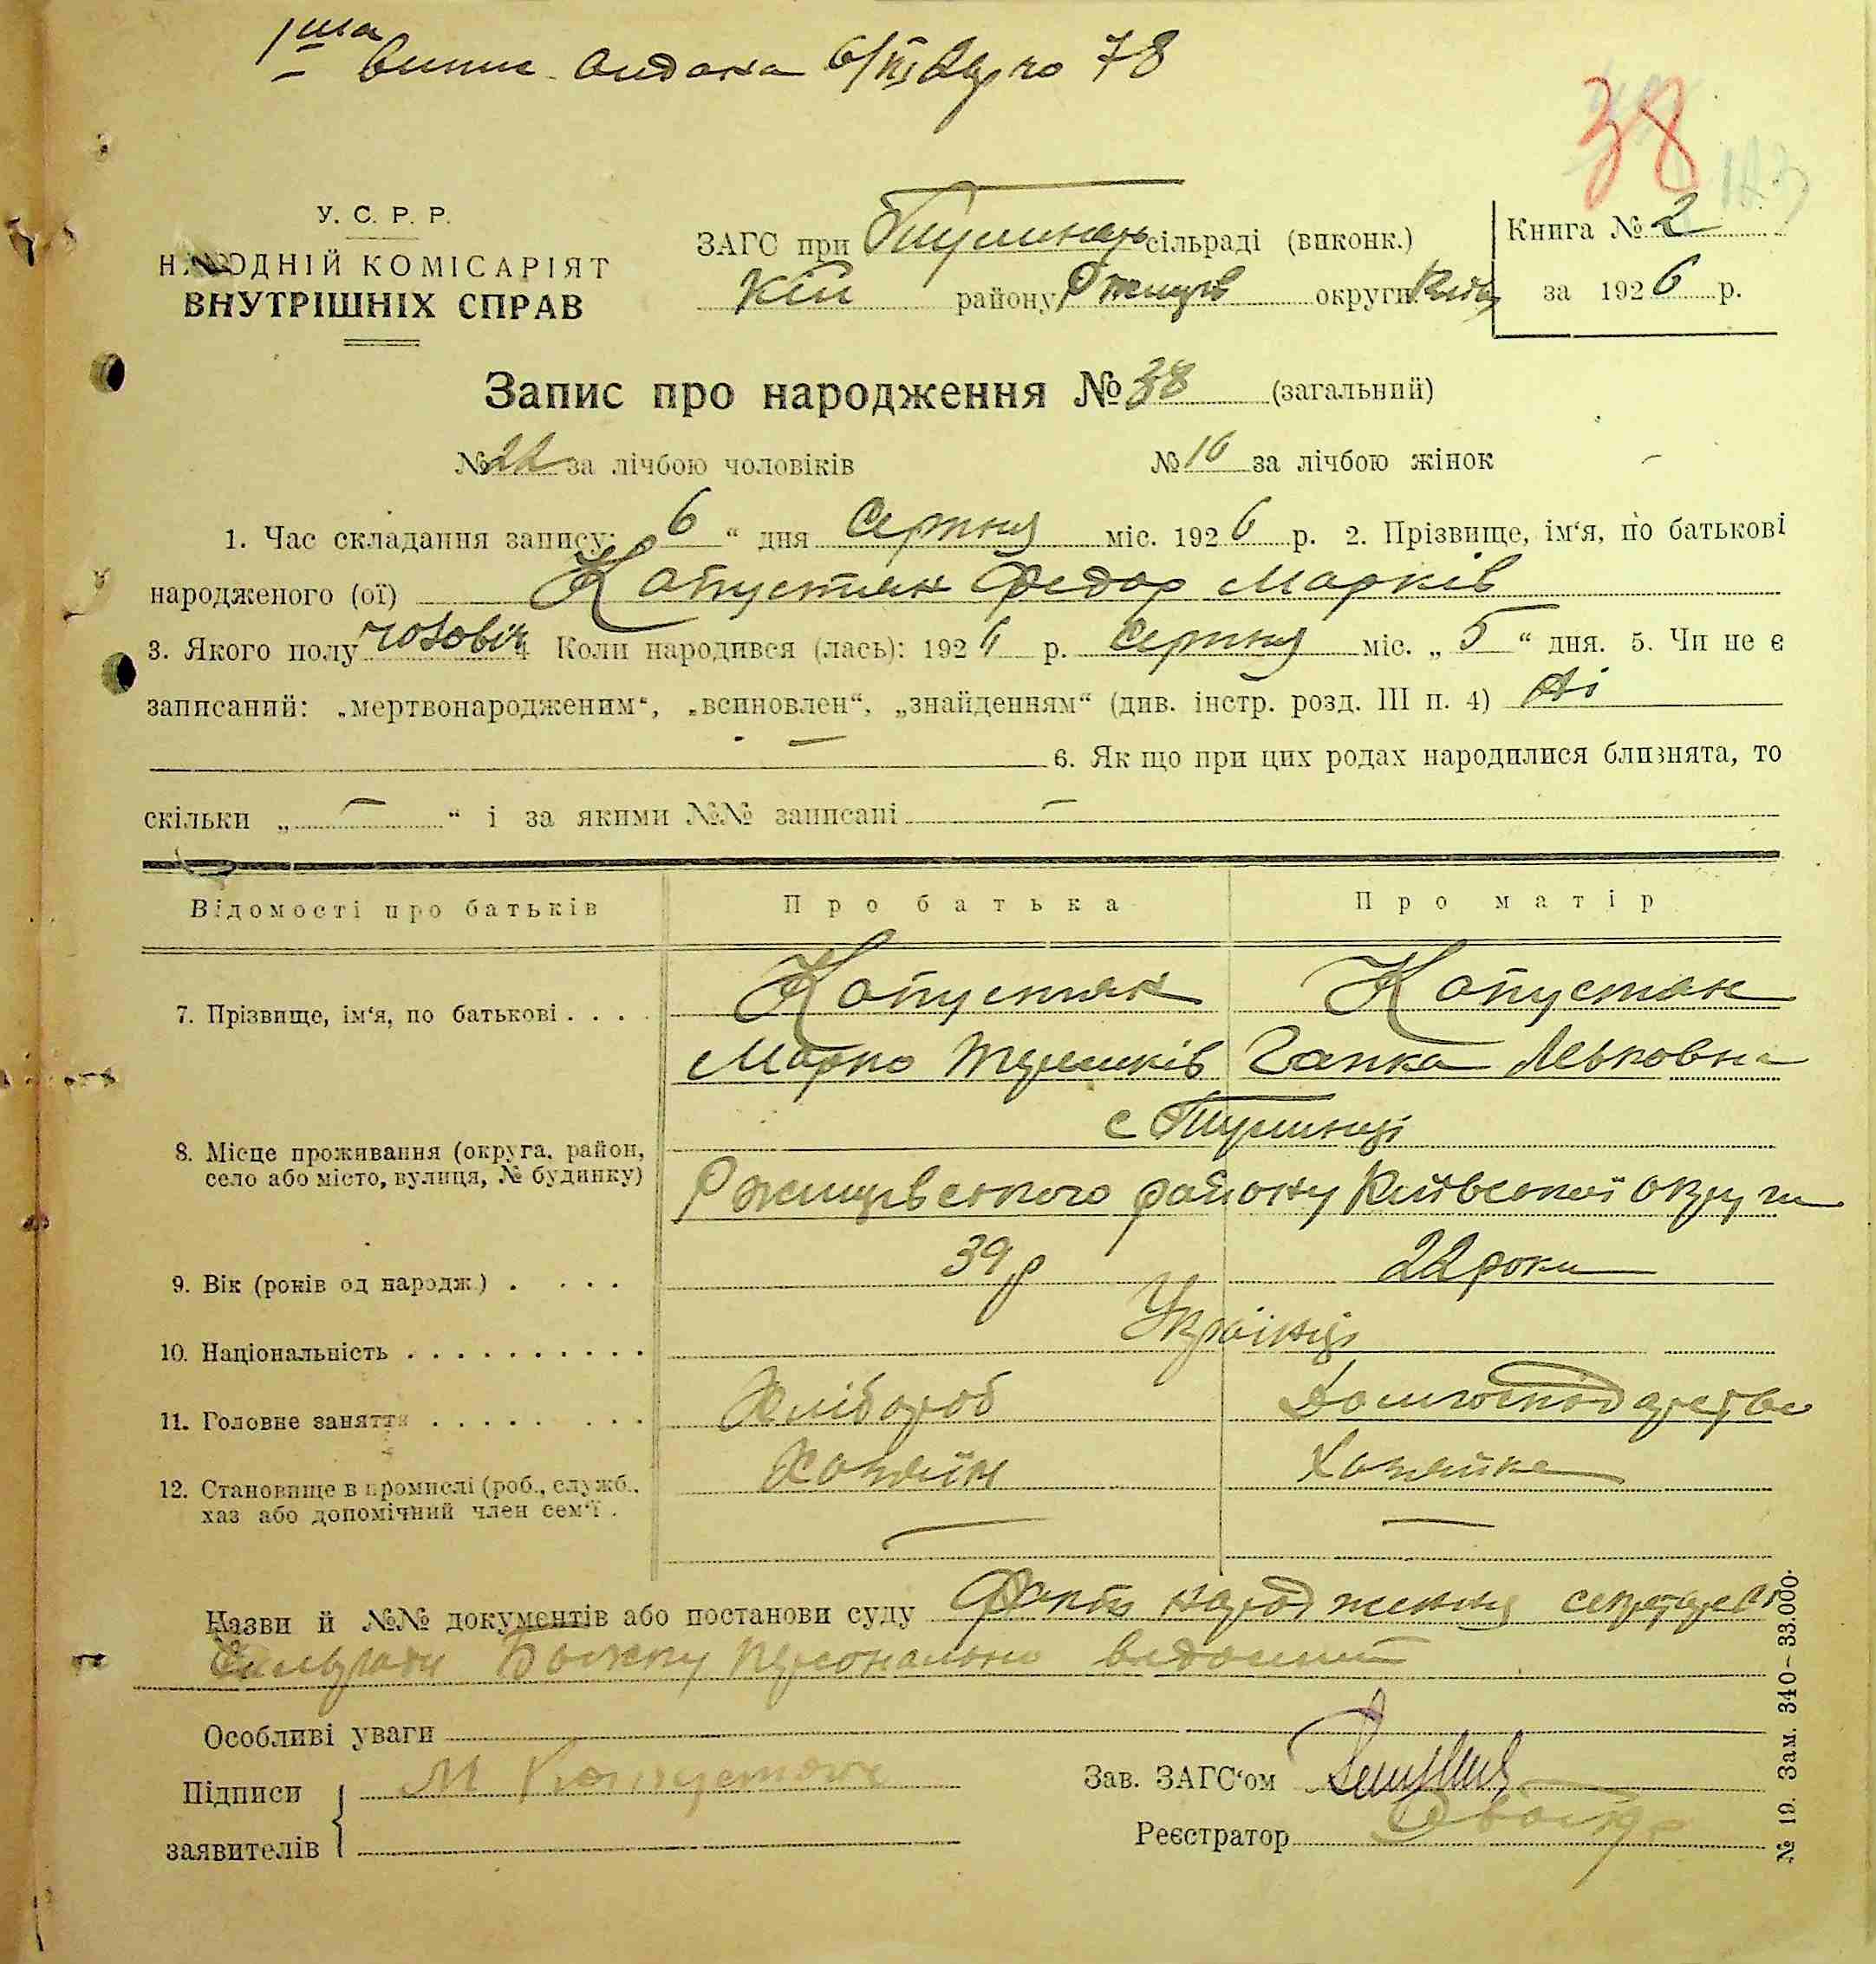 1ша
випис видана 6/III за № 78
38
У. С. Р. Р.
НАРОДНІЙ КОМІСАРІЯТ
ВНУТРІШНІХ СПРАВ
ЗАГС при сільраді (виконк.)
району Ржищів округи Київ
Книга № 2
за 1926 р.
Запис про народження № 38 (загальний)
№ 22 за лічбою чоловіків
№ 16 за лічбою жінок
1. Час складання запису: 6 “ дня Серпня міс. 1926 р. 2. Прізвище, ім‘я, по батькові
народженого (ої) Капустян Федор Марків
3. Якого полу чоловіч 4 Коли народився (лась): 1926 р. Серпня міс. „ 5 “ дня. 5. Чи не є
записаний: „мертвонародженим“, „всиновлен“, „знайденням“ (див. інстр. розд. III п. 4) Ні
— 6. Як що при цих родах народилися близнята, то
скільки „ — “ і за якими №№ записані —
Відомості про батьків
Про батька
Про матір
7. Прізвище, ім‘я, по батькові . . . .
Капустян
Капустян
Марко
Гапка Левковна
8. Місце проживання (округа, район,
село або місто, вулиця, № будинку)
с
Ржищівського району Київської округи
9. Вік (років од народж.) . . . .
39 р
22 роки
10. Національність . . . . . . . . . .
Українці
11. Головне заняття . . . . . . . .
Хлібороб
Домгосподарство
12. Становище в промислі (роб., служб.,
хаз або допомічний член сем‘ї .
Хозяїн
Хозяйка
—
—
Назви й №№ документів або постанови суду Факт народження секретареві
Сільради Божку персонально відомий
Особливі уваги
Підписи
заявителів
М Капустян
Зав. ЗАГС‘ом
Реєстратор
№ 19. Зам. 340–33.000.